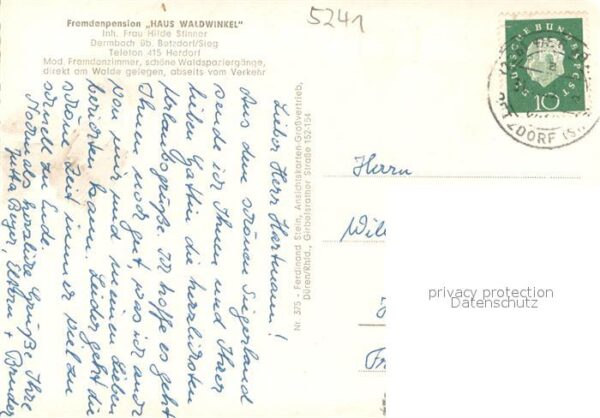 Fremdenpension „HAUS WALDWINKEL"
Inh. Frau Hilde Stinner
Dermbach üb. Betzdorf/Sieg
Telefon 415 Herdorf
Mod. Fremdenzimmer, schöne Waldspaziergänge,
direkt am Walde gelegen, abseits vom Verkehr
5241
DEUTSCHE BUNDESPOST
10
BETZDORF (SI
Lieber Herr Hartmann!
Aus dem schönen Siegerland
sende ich Ihnen und Ihrer
lieben Gattin die herzlichsten
Urlaubsgrüße. Ich hoffe es geht
Ihnen nur gut, was ich auch
von mir und meinen Lieben
berichten kann. Leider geht die
schöne Zeit immer viel zu
schnell zu Ende.
Nochmals herzliche Grüße, Ihre
Jutta Beyer, Eltern + Bruder
Nr. 375 - Ferdinand Stein, Ansichtskarten-Großvertrieb,
Düren/Rhld., Girbelsrather Straße 152-154
Herrn
Will
Fr
privacy protection
Datenschutz